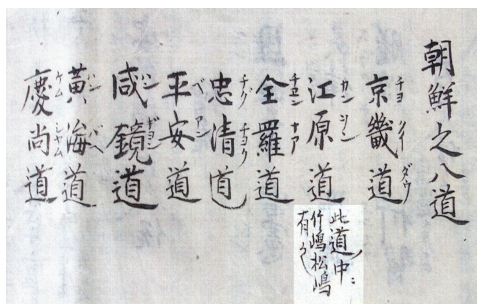 朝鮮之八道
京畿道
ダウ
江原道
カン
此道中ニ
竹嶋松嶋
有之
全羅道
チエン ナア
忠清道
チグ チヨク
平安道
ベ アン
咸鏡道
ハン ギヨン
黄海道
ハン ヘ
慶尚道
ケム シヤム